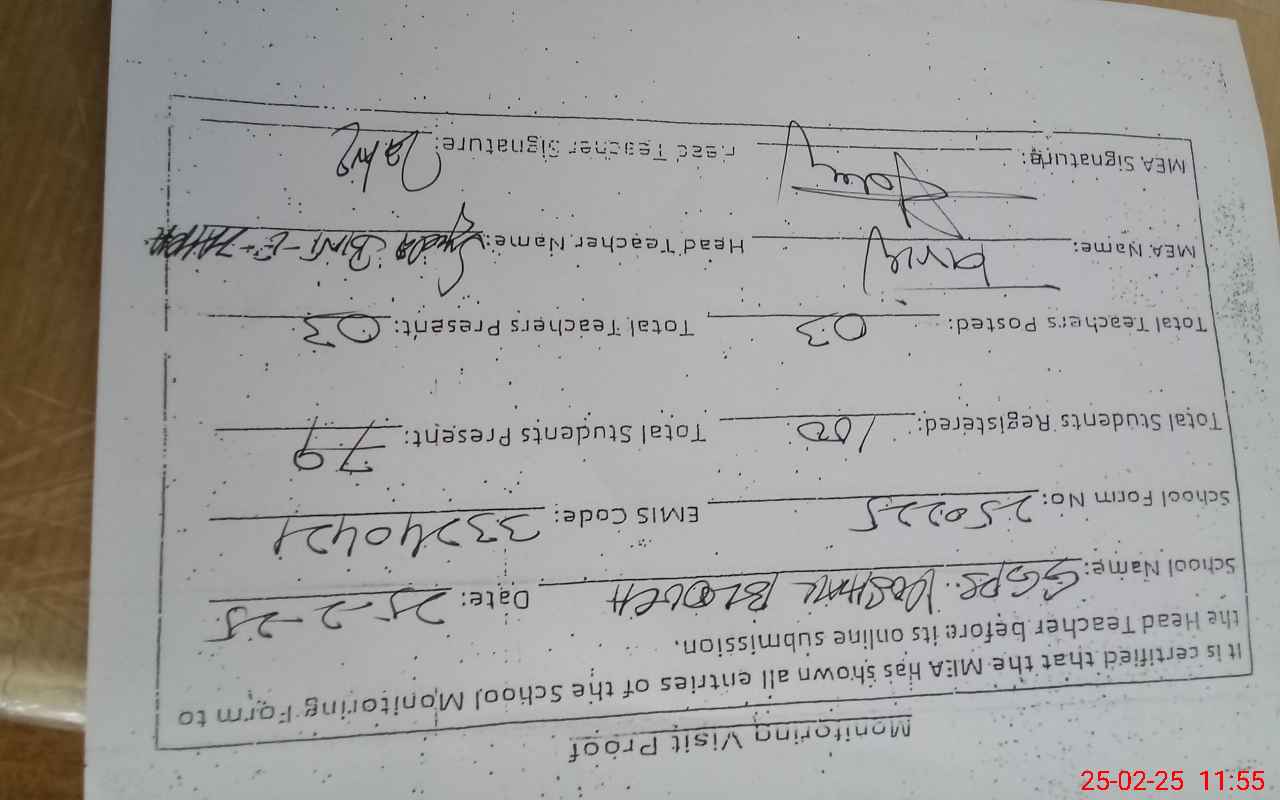 Monitoring Visit Proof
It is certified that the MEA has shown all entries of the School Monitoring Form to
the Head Teacher before its online submission.
School Name: GGPS. KOSHAK BLOUCH Date: 25-2-25
School Form No: 250225 EMIS Code: 33240421
Total Students Registered: 100 Total Students Present: 79
Total Teachers Posted: 03 Total Teachers Present: 03
MEA Name: Head Teacher Name: Syeda BINT-E-
MEA Signature: Head Teacher Signature:
25-02-25 11:55